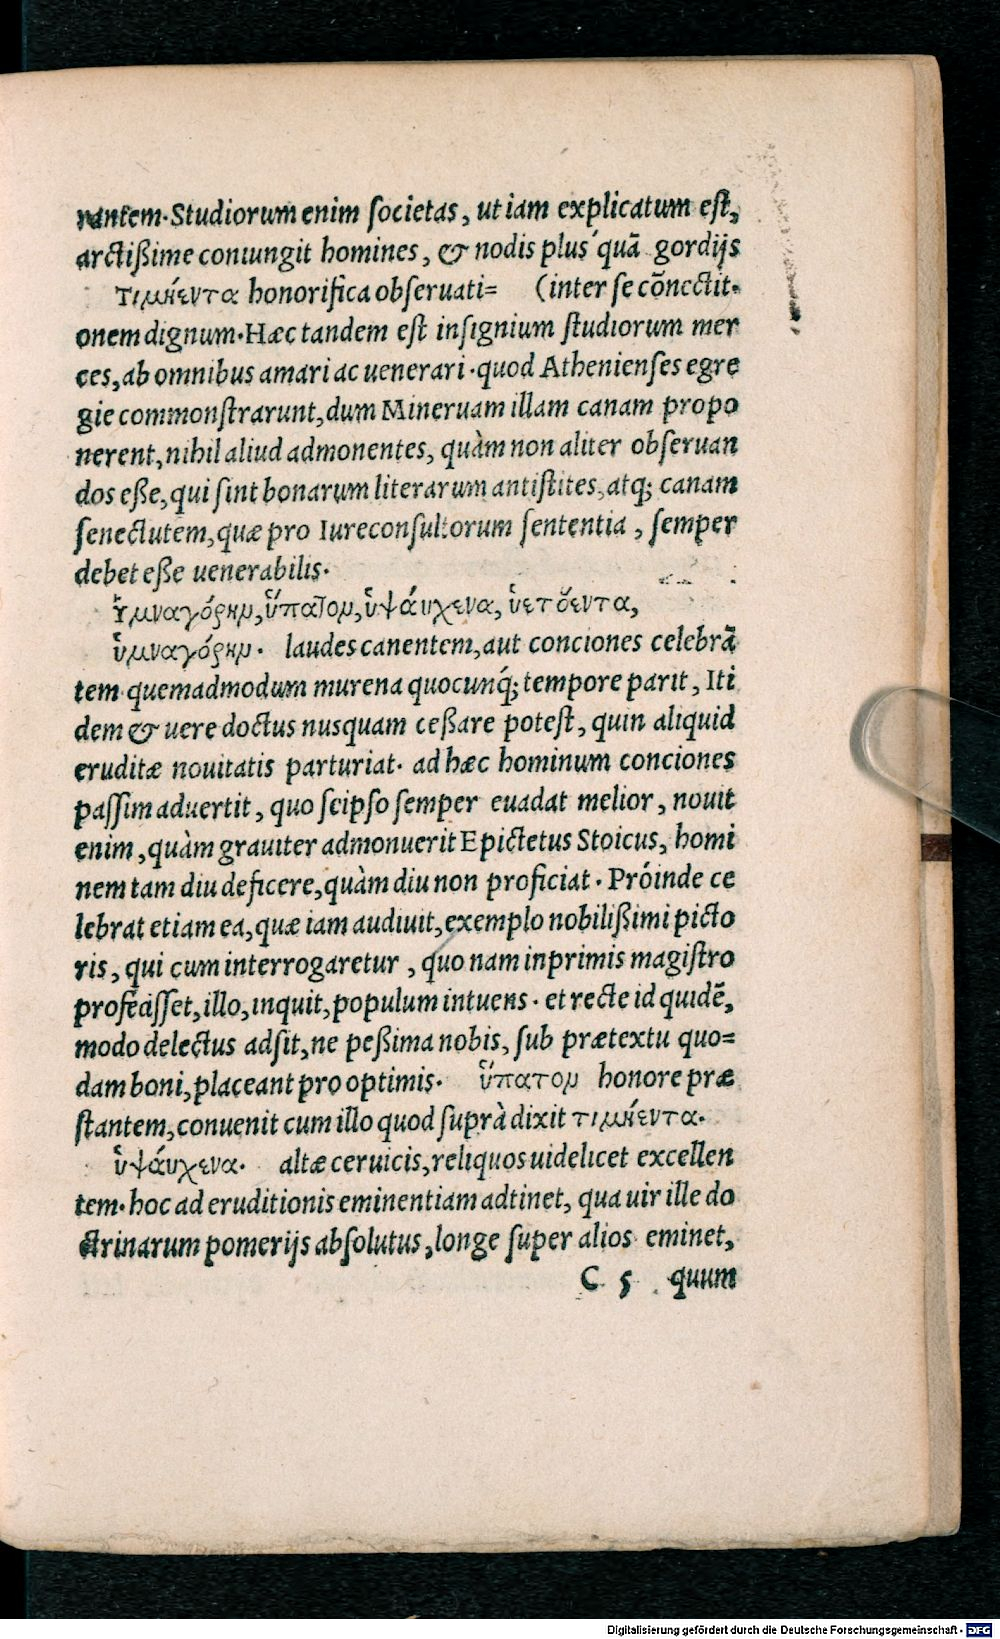 rantem. Studiorum enim ſocietas, ut iam explicatum eſt,
arctißime coniungit homines, & nodis plus quā gordijs
τιμήεντα honorifica obſeruati= (inter ſe cōnectit.
onem dignum. Hæc tandem eſt inſignium ſtudiorum mer
ces, ab omnibus amari ac uenerari. quod Athenienſes egre
gie commonſtrarunt, dum Mineruam illam canam propo
nerent, nihil aliud admonentes, quàm non aliter obſeruan
dos eße, qui ſint bonarum literarum antiſtites, atq; canam
ſenectutem, quæ pro Iureconſultorum ſententia, ſemper
debet eße uenerabilis.
ὑμναγόρην, ὕπατον, ὑψάυχενα, ὑετόεντα,
ὑμναγόρην. laudes canentem, aut conciones celebrā
tem quemadmodum murena quocunq́; tempore parit, Iti
dem & uere doctus nusquam ceßare poteſt, quin aliquid
eruditæ nouitatis parturiat. ad hæc hominum conciones
paſſim aduertit, quo ſeipſo ſemper euadat melior, nouit
enim, quàm grauiter admonuerit Epictetus Stoicus, homi
nem tam diu deficere, quàm diu non proficiat. Próinde ce
lebrat etiam ea, quæ iam audiuit, exemplo nobilißimi picto
ris, qui cum interrogaretur, quo nam inprimis magiſtro
profeciſſet, illo, inquit, populum intuens. et recte id quidē,
modo delectus adſit, ne peßima nobis, ſub prætextu quo=
dam boni, placeant pro optimis. ὕπατον honore præ
ſtantem, conuenit cum illo quod ſuprà dixit τιμήεντα.
ὑψάυχενα. altæ ceruicis, reliquos uidelicet excellen
tem. hoc ad eruditionis eminentiam adtinet, qua uir ille do
ctrinarum pomerijs abſolutus, longe ſuper alios eminet,
C 5 quum
Digitalisierung gefördert durch die Deutsche Forschungsgemeinschaft - DFG